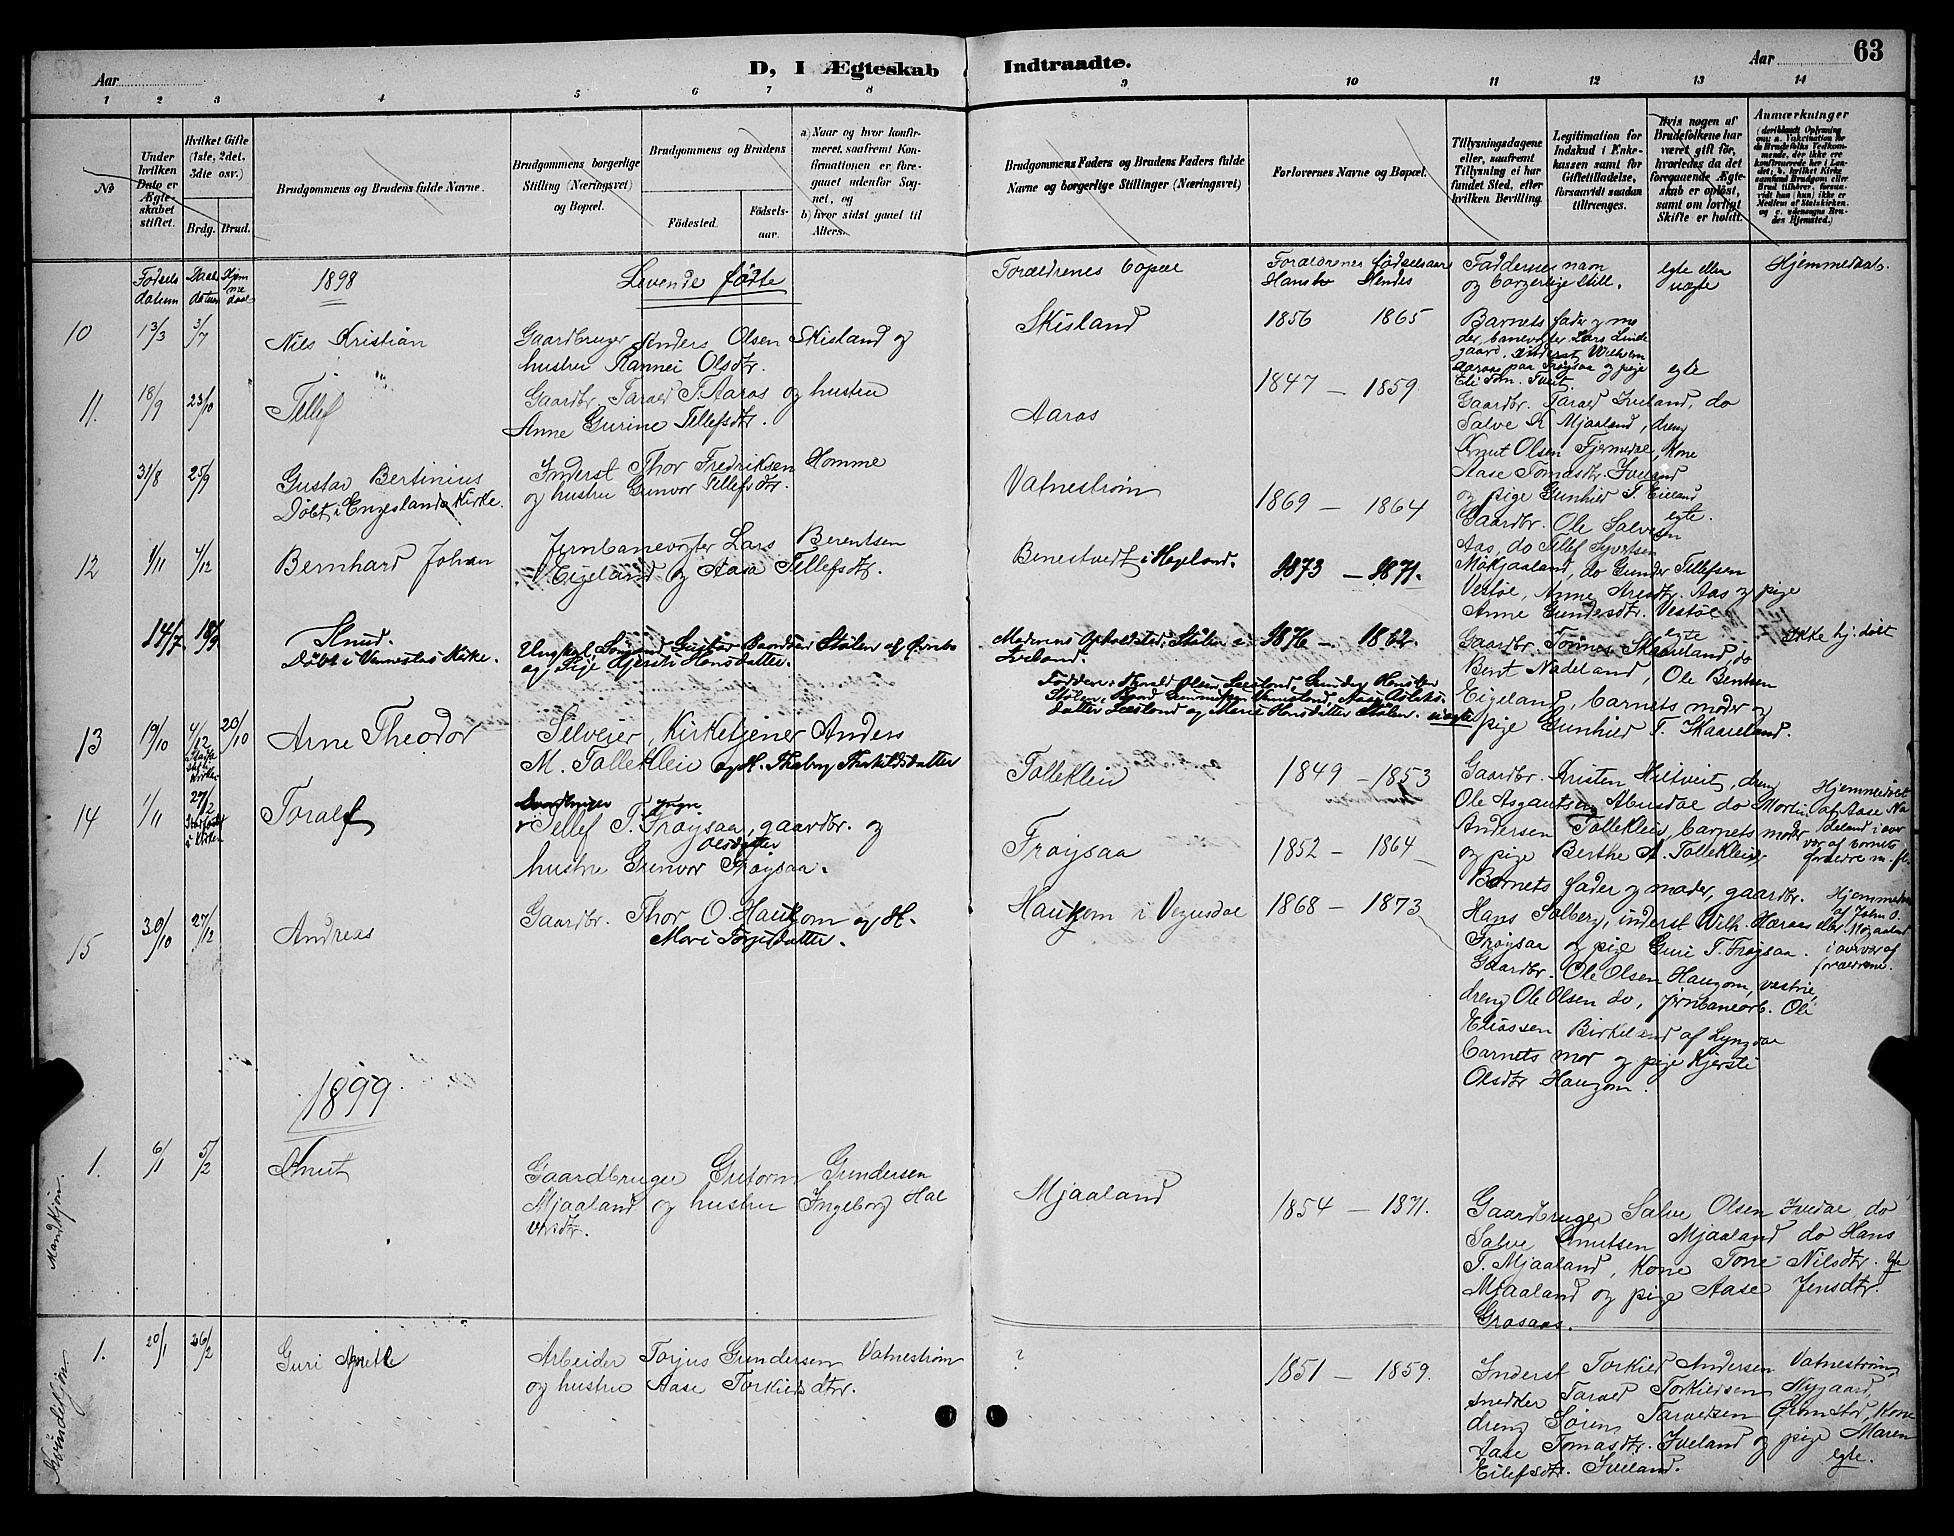 Aar
D, I Ægteskab
Indtraadte.
Aar
63
1 2 3 4 5 6 7 8 9 10 11 12 13 14
No
Under hvilken Dato er Ægteskabet stiftet.
Hvilket Gifte (1ste, 2det, 3die osv.)
Brdg. Brud.
Brudgommens og Brudens fulde Navne.
Brudgommens borgerlige Stilling (Næringsvei) og Bopæl.
Brudgommens og Brudens
Fødested.
Fødselsaar.
a) Naar og hvor konfirmeret, saafremt Konfirmationen er foregaaet udenfor Sognet, og
b) hvor sidst gaaet til Alters.
Brudgommens Faders og Brudens Faders fulde Navne og borgerlige Stillinger (Næringsvei)
Forlovernes Navne og Bopæl.
Tillysningsdagene eller, saafremt Tillysning ei har fundet Sted, efter hvilken Bevilling.
Legitimation for Indskud i Enkekassen samt for Giftetilladelse, forsaavidt saadan tiltrænges.
Hvis nogen af Brudefolkene har været gift før, hvorledes da det foregaaende Ægteskab er opløst, samt om lovligt Skifte er holdt.
Anmærkninger
Fødsels datum
Daab datum
Hjemme daab
1898
Levende fødte
Forældrenes bopæl
Forældrenes fødselsaar
Hans Hendes
Faddernes navn
og borgerlige still.
egte eller
uegte
Hjemmedaab.
10 13/3 3/7
Nils Kristian
Gaardbruger Anders Olsen Skisland og
hustru Rannei Olsdtr.
Skisland
1856 1865
Barnets fader og mo
der, banevogter Lars Linde
gaard, inderst Wilhelm
Aaraas paa Frøysaa og pige
Eli Tom. Tveit.
egte
11. 18/9 23/10
Tellef
Gaardbr. Tarald T. Aaros og hustru
Anne Gurine Tellefsdtr.
Aaros
1847 — 1859
Gaardbr. Tarald Iveland, do
Salve K Mjaaland, dreng
Knut Olsen Fjermedal, Kone
Aase Tomasdtr Iveland
og pige Gunhild T. Eieland
egte.
31/8 25/9
Gustav Bertinius
Døbt i Engeslands Kirke.
Inderst Thor Fredriksen Homme
og hustru Gunvor Tellefsdtr.
Vatnestrøm
1869 — 1864
Gaardbr. Ole Salvesen
Aas, do Tellef Syvertsen
Mokjaaland, do Gunder Tellefsen
Vestøl, Anne Aresdtr. Aas og pige
Anne Gundersdtr. Vestøl
egte
12 1/11 4/12
Bernhard Johan
Jernbanevogter Lars Berentsen
Eigeland og Aasa Tellefsdtr.
Benestvedt i Hægeland.
1873 — 1871.
Gaardbr. Tønnes Skaareland, do
Bent Nadeland, Ole Bentsen
Eigeland, barnets moder og
pige Gunhild T. Skaareland.
14/7 18/9
Knud.
Døbt i Vennesla Kirke.
Ungkarl Sigurd Gustav Baardsen Stølen af Øvrebø
og Pige Kjersti Hansdatter.
Moderens Opholdsted: Stølen i
Iveland.
1876 — 1862.
Ikke hj. døbt
Faddere: Harald Olsen Leesland, Gunder Hansen
Stølen, Baard Gunnufsen Vennesland, Aase Aslaks
datter Leesland og Marie Hansdatter Stølen. uegte
13 19/10 4/12 20/10
Arne Theodor
Selveier, Kirketjener Anders
M. Tolleklei og H. Thaborg Therkildsdatter
Tolleklei
1849 — 1853
Gaardbr. Kristen Hiltveit, dreng
Ole Asgautsen Abusdal do Morten
Andersen Tolleklei, barnets moder
og pige Berthe A. Tolleklei.
Hjemmedøbt
af Aase Na
deland i over
vær af barnets
forældre m. fl.
14 1/11 27/12
Toralf
Gaardbruger yngre
Tellef T. Frøysaa, gaardbr. og
Olsdatter
hustru Gunvor Frøysaa.
Frøysaa
1852 — 1864
Barnets fader og moder, gaardbr.
Hans Solberg, inderst Wilh. Aaraas eller
Frøysaa og pige Guri T. Frøysaa.
Hjemmedøbt
af John O.
Mjaaland
i overvær af
forældrene.
15 30/10 27/12
Andreas
Gaardbr. Thor O. Haugom og H.
Mari Torjusdatter.
Haugom i Vegusdal
1868 — 1873
Gaardbr. Ole Olsen Haugom, vestre,
dreng Ole Olsen do, jernbanearb. Ole
Eliassen Birkeland af Lyngdal
barnets mor og pige Kjersti
Olsdtr Haugom.
1899
Mandkjøn.
1. 6/1 5/2
Knut
Gaardbruger Guttorm Gundersen
Mjaaland og hustru Ingeborg Hal
vorsdtr.
Mjaaland
1854 — 1871.
Gaardbruger Salve Olsen Ivedal, do
Salve Knutsen Mjaaland do Hans
T. Mjaaland, Kone Tone Nilsdtr. egte
Mjaaland og pige Aase Jensdtr.
Grosaas.
Kvindekjøn
1. 20/1 26/2
Guri Agnette
Arbeider Torjus Gundersen Vatnestrøm
og hustru Aase Torkildsdtr.
?
1851 — 1859.
Inderst Torkild Andersen Vatnestrøm
snedker Tarald Torkildsen Nygaard,
dreng Søren Taraldsen Grimstad, Kone
Aase Tomasdtr. Iveland og pige Maren
Eilefsdtr. Iveland.
egte.